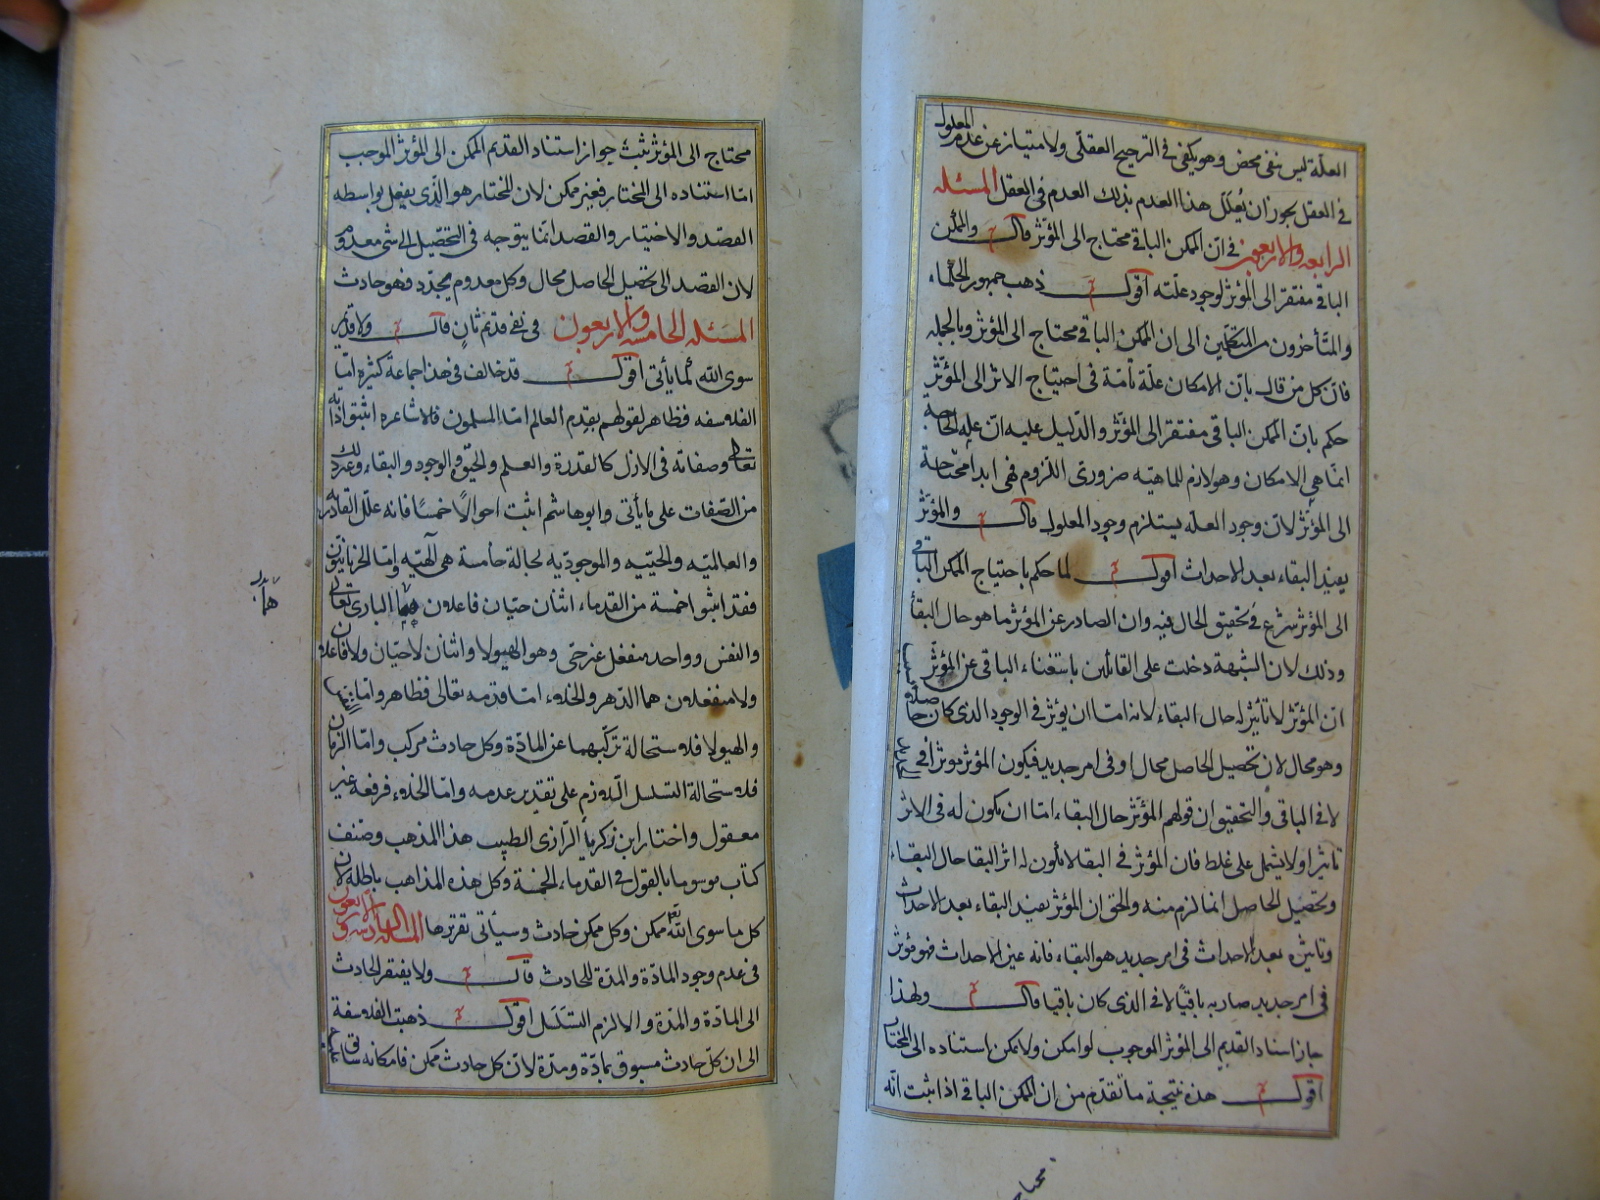 العلة ليس بنفى محض وهو يكفى فى الترجيح العقلى ولامتيازه عن عدم المعلول
فى العقل يجوز ان يعلل هذا العدم بذلك العدم فى العقل المسئله
الرابعه والاربعون فى ان الممكن الباقى محتاج الى المؤثر قال والممكن
الباقى مفتقر الى المؤثر لوجود علته اقول ذهب جمهور الحكماء
والمتأخرون من المتكلمين الى ان الممكن الباقى محتاج الى المؤثر وبالجمله
فان كل من قال بان الامكان علة تامة فى احتياج الاثر الى المؤثر
حكم بان الممكن الباقى مفتقر الى المؤثر والدليل عليه ان علة الحاجة
انما هى الامكان وهو لازم للماهيه ضرورى اللزوم فهى ابدا محتاجة
الى المؤثر لان وجود العله يستلزم وجود المعلول قال والمؤثر
يفيد البقاء بعد الاحداث اقول لما حكم باحتياج الممكن الباقى
الى المؤثر شرع فى تحقيق الحال فيه وان الصادر عن المؤثر ما هو حال البقاء
وذلك لان الشبهة دخلت على القائلين باستغناء الباقى عن المؤثر بسبب
ان المؤثر لا تأثير له حال البقاء لانه اما ان يؤثر فى الوجود الذى كان حاصلا
وهو محال لان تحصيل الحاصل محال او فى امر جديد فيكون المؤثر مؤثرا فى الجديد
لا فى الباقى والتحقيق ان قولهم المؤثر حال البقاء اما ان يكون له فى الاثر
تأثير اولا يشمل على غلط فان المؤثر فى البقاء لا يكون له اثر البقا حال البقاء
وتحصيل الحاصل انما لزم منه والحق ان المؤثر يفيد البقاء بعد الاحداث
وتاثيره بعد الاحداث فى امر جديد هو البقاء فانه غير الاحداث فهو مؤثر
فى امر جديد صار به باقيا لا فى الذى كان باقيا قال ولهذا
جاز اسناد القديم الى المؤثر الموجب لو امكن ولا يمكن استناده الى المختار
اقول هذه نتيجة ما تقدم من ان الممكن الباقى اذا ثبت انه
محتاج
محتاج الى المؤثر ثبت جواز استناد القديم الممكن الى المؤثر الموجب
اما استناده الى المختار فغير ممكن لان المختار هو الذى يفعل بواسطه
القصد والاختيار والقصد انما يتوجه فى التحصيل الى شى معدوم
لان القصد الى تحصيل الحاصل محال وكل معدوم يجدد فهو حادث
المسئله الخامسه والاربعون فى نفى قديم ثان قال ولا قديم
سوى الله لما يأتى اقول قد خالف فى هذا جماعة كثيره اما
الفلاسفه فظاهر لقولهم بقدم العالم اما المسلمون فالاشاعره اثبتوا ذاته
تعالى وصفاته فى الازل كالقدرة والعلم والحيوة والوجود والبقاء وغير ذلك
من الصفات على ما يأتى وابوهاشم اثبت احوالا خمسا فانه علل القادريه
والعالميه والحييه والموجوديه لحالة خامسة هى الهيه واما الحرنانيون
فقد اثبتوا خمسة من القدماء اثنان حيان فاعلان هما البارى تعالى
والنفس وواحد منفعل غير حى وهو الهيولا واثنان لا حيان ولا فاعلان
ولا منفعلان هما الدهر والخلاء اما قدمه تعالى فظاهر واما النفس
والهيولا فلاستحالة تركبهما عن المادة وكل حادث مركب واما الزمان
فلاستحالة التسلسل اللازم على تقدير عدمه واما الخلاء فرفعه غير
معقول واختار ابن زكريا الرازى الطبيب هذا المذهب وصنف
كتاب موسوما بالقول فى القدماء الخمسة وكل هذه المذاهب باطله لان
كل ما سوى الله ممكن وكل ممكن حادث وسيأتى تقريرها المسئله السادسه والاربعون
فى عدم وجود المادة والمدة للحادث قال ولا يفتقر الحادث
الى المادة والمدة والا لزم التسلسل اقول ذهبت الفلاسفة
الى ان كل حادث مسبوق بمادة ومدة لان كل حادث ممكن فامكانه سابق